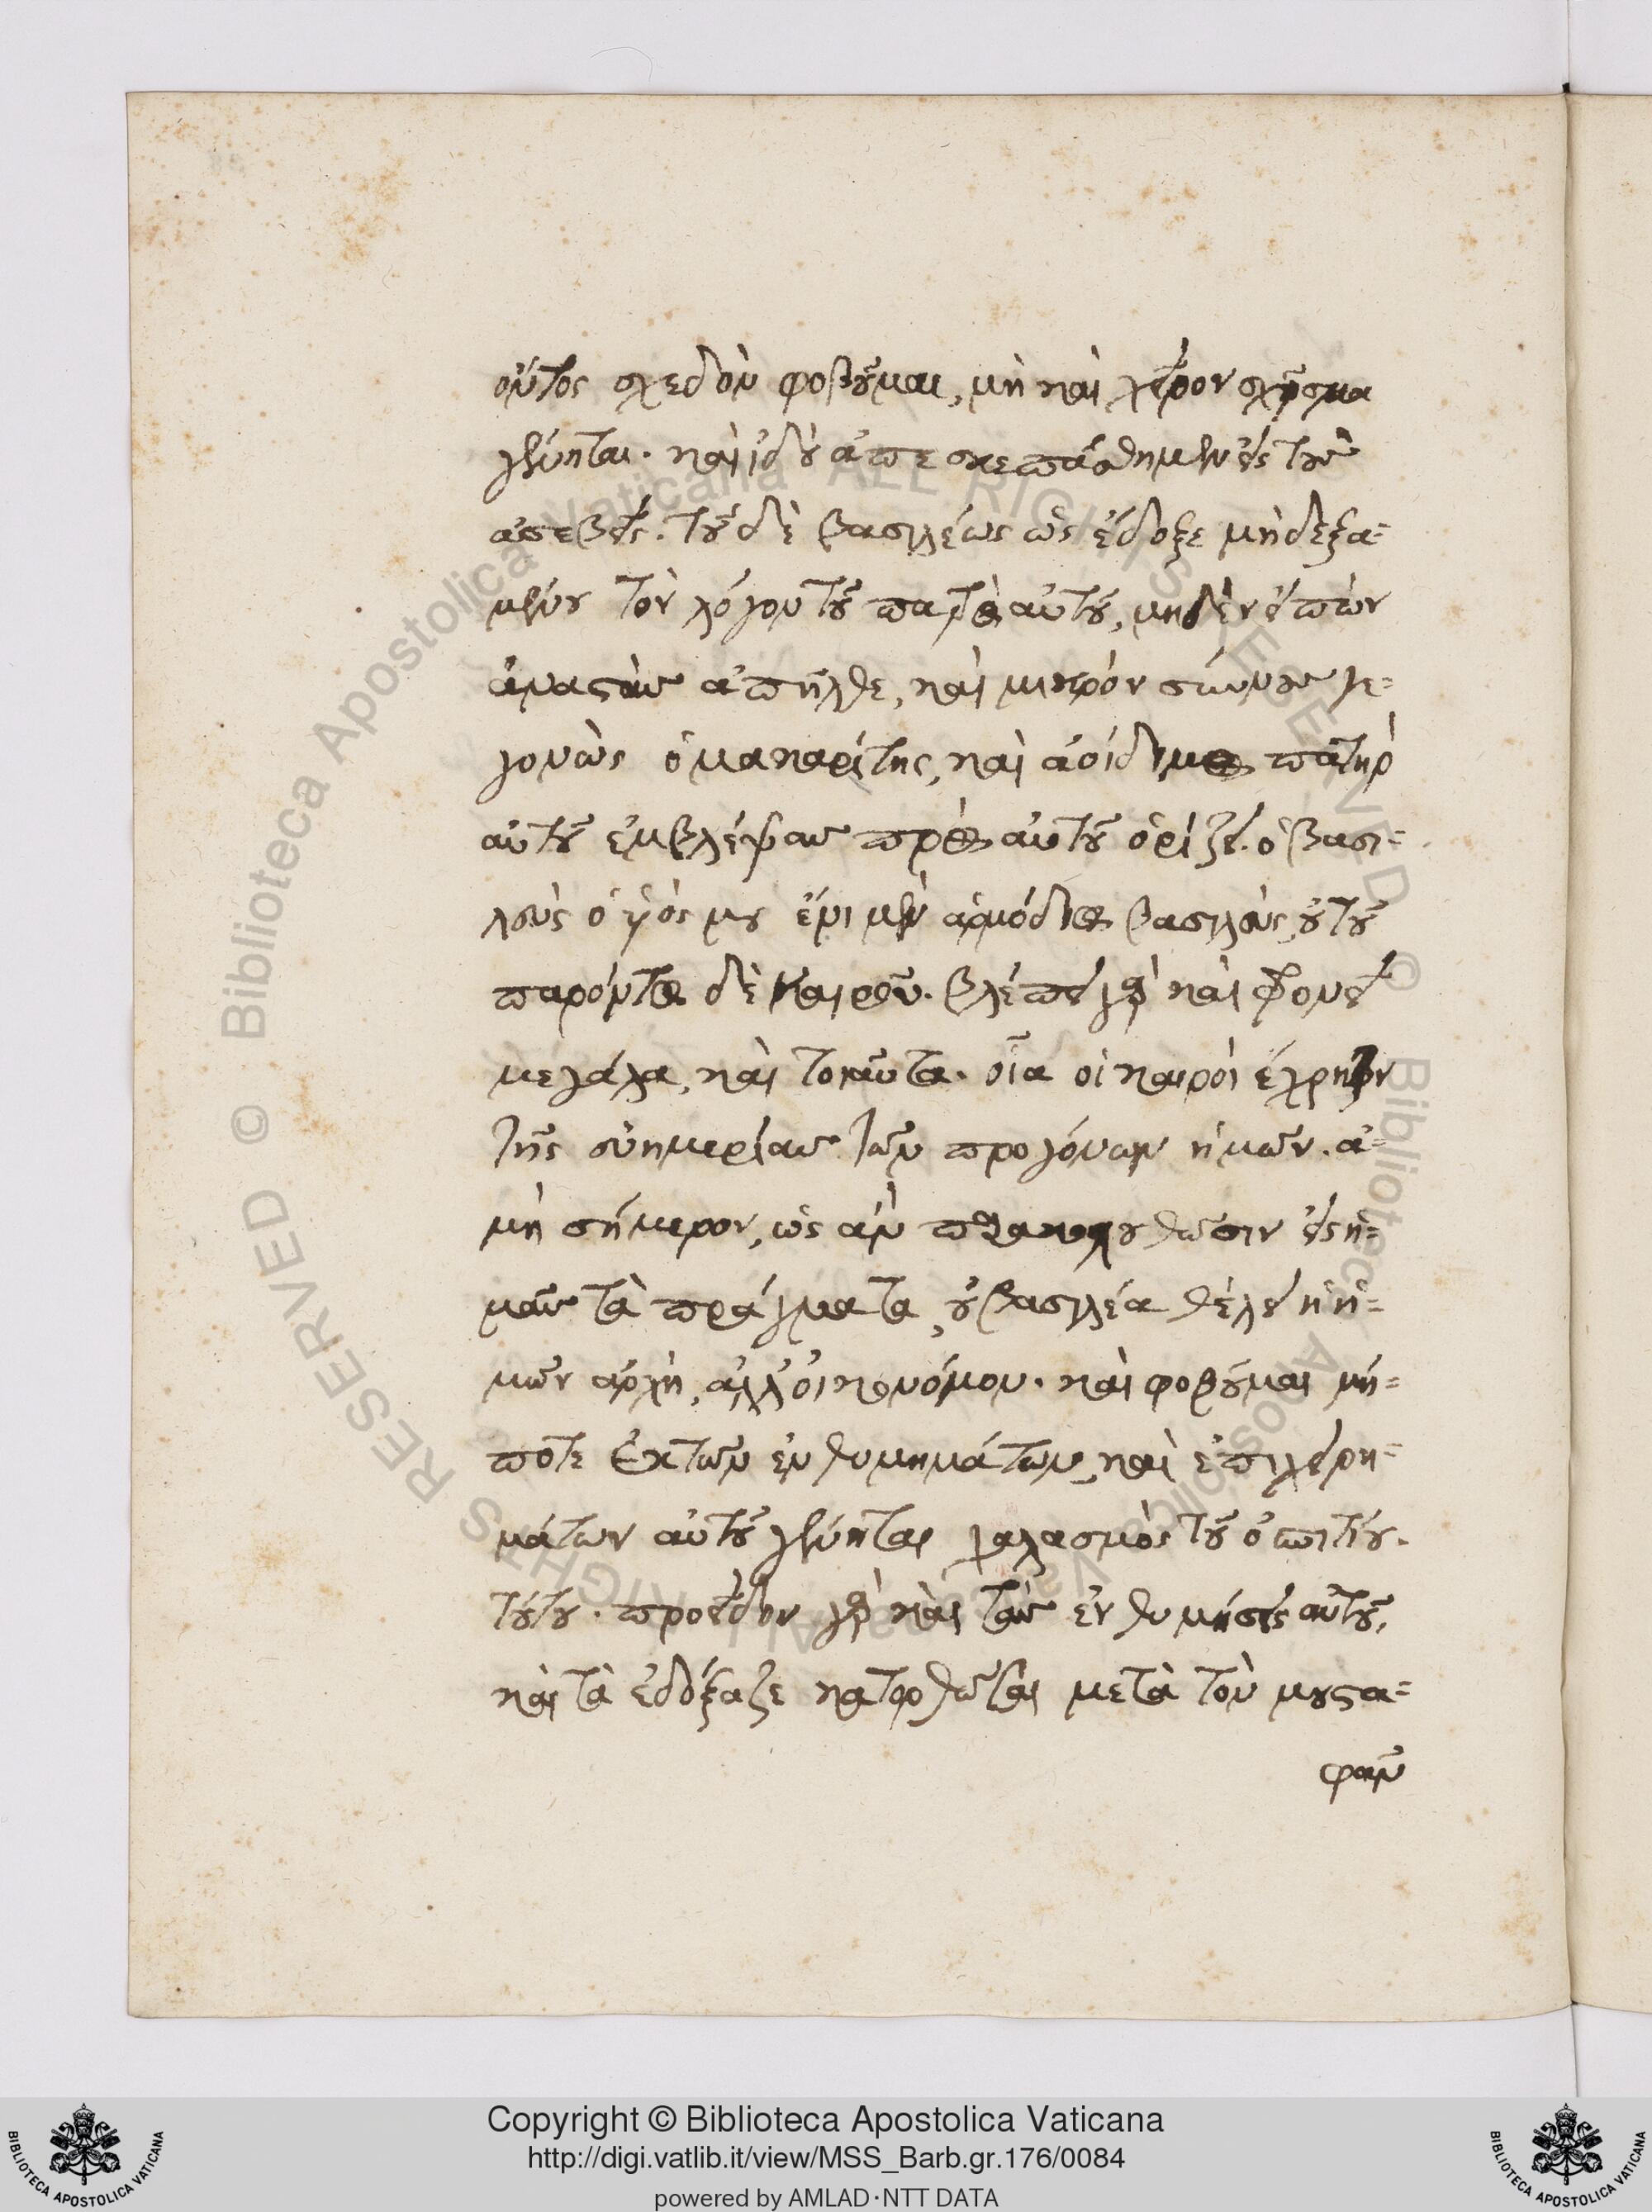 οὗτος σχεδὸν φοβοῦμαι, μὴ καὶ χεῖρον σχῖσμα
γένηται. καὶ ἰδοὺ ἀπεσκεπάσθημεν εἰς τοὺς
ἀσεβεῖς. τοῦ δὲ βασιλέως ὡς ἔδοξε μὴ δεξα=
μένου τὸν λόγον τοῦ πατρὸς αὐτοῦ, μηδὲν εἰπὼν
ἀναστὰς ἀπῆλθε, καὶ μικρὸν σύννους γε=
γονὼς ὁ μακαρίτης, καὶ ἀοίδιμος πατὴρ
αὐτοῦ ἐμβλέψας πρὸς αὐτοῦ ὁρίζει. ὁ βασι=
λεὺς ὁ υἱός μου ἔνι μὲν ἁρμόδιος βασιλεὺς, οὐ τοῦ
παρόντος δὲ καιροῦ. βλέπει γὰρ καὶ φρονεῖ
μεγάλα, καὶ τοιαῦτα. οἷα οἱ καιροὶ ἔχρηζον
τῆς εὐημερίας τῶν προγόνων ἡμῶν. ἀ=
μὴ σήμερον, ὡς ἂν παρακολουθῶσιν εἰς ἡ=
μᾶς τὰ πράγματα, οὐ βασιλέα θέλει ἡ ἡ=
μῶν ἀρχὴ, ἀλλ' οἰκονόμον. καὶ φοβοῦμαι μή=
ποτε ἐκ τῶν ἐνθυμημάτων, καὶ ἐπιχειρη=
μάτων αὐτοῦ γένηται χαλασμὸς τοῦ ὁσπιτίου.
τούτου. προεῖδον γὰρ καὶ τὰς ἐνθυμήσεις αὐτοῦ,
καὶ τὰ ἐδόξαζε κατορθῶσαι μετὰ τὸν μουστα=
φᾶν